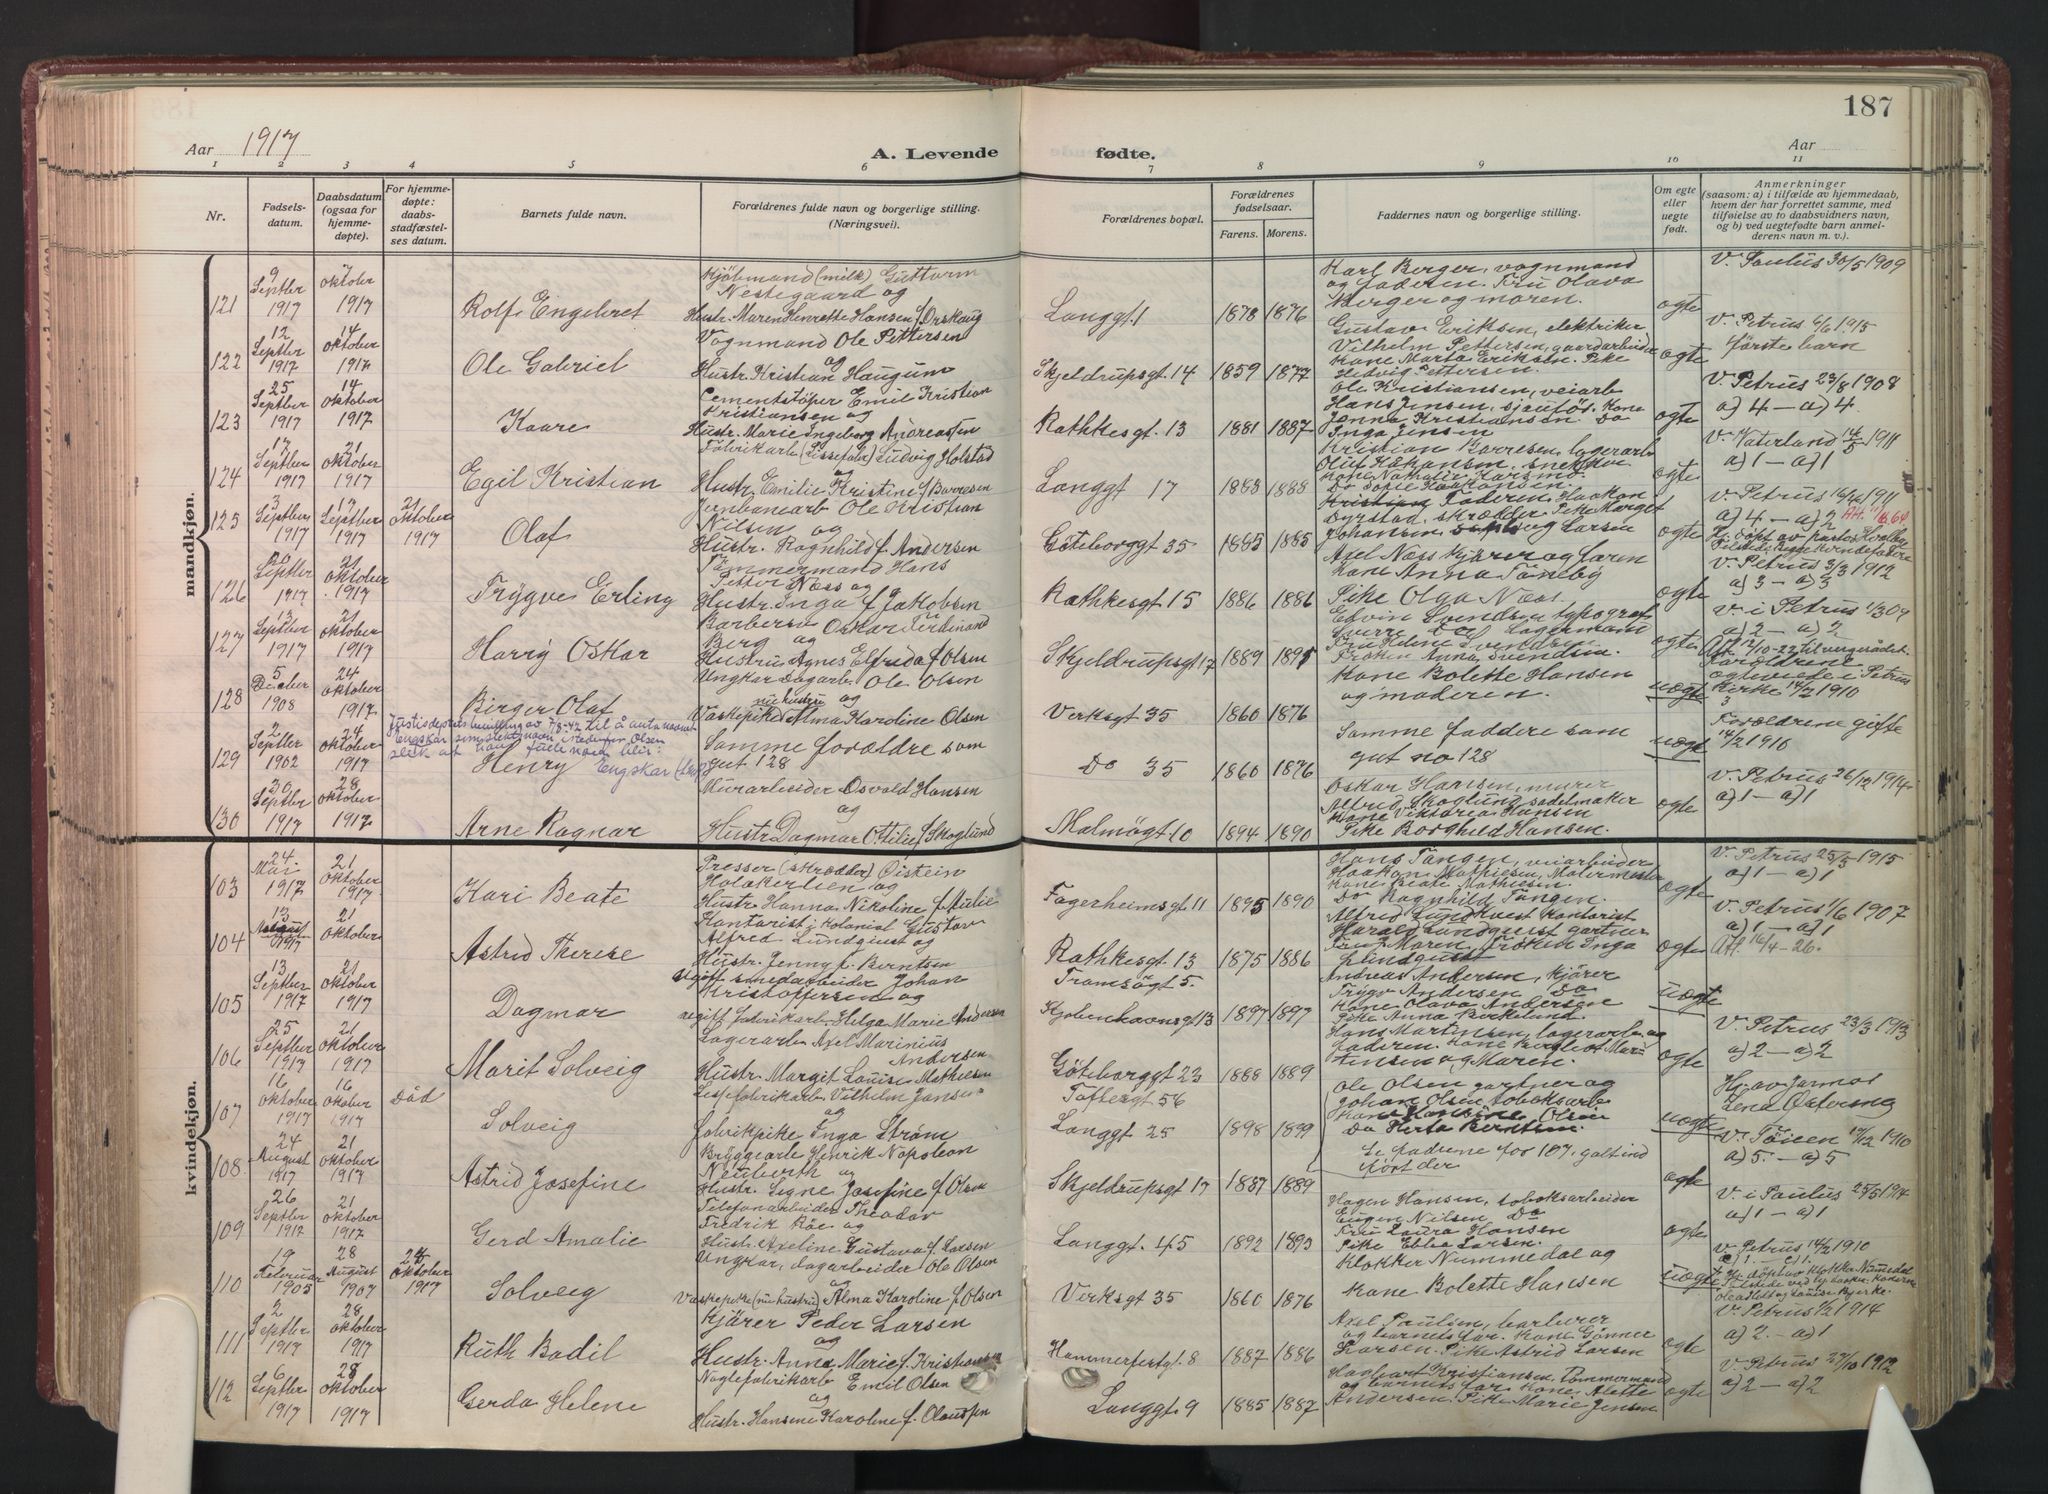 187
Aar 1917
A. Levende
fødte.
Aar
1 2 3 4 5 6 7 8 9 10 11
Nr.
Fødselsdatum.
Daabsdatum (ogsaa for hjemmedøpte).
For hjemmedøpte: daabsstadfæstelses datum.
Barnets fulde navn.
Forældrenes fulde navn og borgerlige stilling. (Næringsvei).
Forældrenes bopæl.
Forældrenes fødselsaar.
Farens. Morens.
Faddernes navn og borgerlige stilling.
Om egte eller uegte født.
Anmerkninger
(saasom: a) i tilfælde av hjemmedaab, hvem der har forrettet samme, med tilføielse av to daabsvidners navn, og b) ved uegtefødte barn anmelderens navn m. v.).
mandkjøn.
121
9 Septbr 1917
7 oktober 1917
Rolf Engebret
Kjöbmand (milk) Guttorm
Nestegaard og
Hustr. Maren Henrette Hansen f. Orskaug
Langgt. 1
1878 1876
Karl Berger, vognmand
og faderen. Fru Olava
Berger og moren.
egte
V. Paulus 30/5 1909
122
12 Septbr 1917
14 oktober 1917
Ole Gabriel
Vognmand Ole Pettersen
og
Hustr. Kristian Haugum
Skjeldrupsgt. 14
1859 1877
Gustav Eriksen, elektriker
Vilhelm Pettersen, gaardarbeider
Kone Marta Eriksen. Pike
Hedvig Pettersen.
egte
V. Petrus 6/6 1915
første barn
123
25 Septbr 1917
14 oktober 1917
Kaare
Cementstöper Emil Kristian
Kristiansen og
Hustr. Marie Ingeborg Andreassen
Rathkesgt. 13
1881 1887
Ole Kristiansen, veiarb
Hans Jensen, sjauför. Kone
Janna Kristiansen Do
Inga Jensen
egte
V. Petrus 23/8 1908
a) 4 – a) 4.
124
17 Septbr 1917
21 oktober 1917
Egil Kristian
Fabrikarb. (Lissefabr) Ludvig Holstad
og
Hustr. Emilie Kristine f. Borresen
Langgt 17
1883 1888
Kristian Borresen, lagerarb
Oluf Håkansen, snekker
egte
V. Vaterland 14/5 1911
a) 1 – a) 1
125
3 Septbr 1917
17 Septbr 1917
21 oktober 1917
Olaf
Jernbanearb Ole Kristian
Nilsen og
Hustr. Ragnhild f. Andersen
Göteborggt 35
1885 1885
Faderen. Haakon
Dyrstad, skrædder. Pike Margit
Johansen og Larsen
egte
V. Petrus 16/12 1911
a) 4 – a) 2
126
21 oktober 1917
Trygve Erling
Tömmermand Hans
Petter Næss og
Hustr. Inga f. Jakobsen
Rathkesgt 15
1886 1886
Axel Næss kjörer og faren
Kone Anna Töneby
Pike Olga Næss.
egte
V. Petrus 3/3 1912
a) 3 – a) 3
127
13 Septbr 1917
21 oktober 1917
Harry Oskar
Barberer Oskar Ferdinand
Berg og
Hustru Agnes Elfreda f. Olsen
Skjeldrupsgt 17
1889 1891
Edvin Svendsen typograf
Sverre Do Lagermann
Fru Helene Svendsen
Fröken Anna Svendsen
egte
V. i Petrus 1/3 09
a) 2 – a) 2
128
5 December 1908
24 oktober 1917
Birger Olaf
Ungkar Dagarb. Ole Olsen
nu hustru og
Vaskepike Alma Karoline Olsen
Verksgt 35
1860 1876
Kone Bolette Hansen
og moderen.
uegte
Forældrene
egteviede i Petrus
Kirke 14/2 1910
129
2 Septbr 1902
24 oktober 1917
Henry Engskar
Samme forældre som
gut 128
Do 35
1860 1876
Samme faddere som
gut no 128
uegte
Forældrene gifte
14/2 1910
130
30 Septbr 1917
28 oktober 1917
Arne Ragnar
Murarbeider Osvald Hansen
og
Hustr. Dagmar Ottilie f. Skoglund
Malmögt 10
1894 1890
Oskar Hansen, murer
Alfred Skoglund, sadelmaker
Kone Viktoria Hansen
Pike Borghild Hansen.
egte
V. Petrus 26/12 1914
a) 1 – a) 1
kvindekjøn.
103
24 Mai 1917
21 oktober 1917
Kari Beate
Presser (skrædder) Öistein
Holakerlien og
Hustr. Hanna Nikoline f. Aulie
Fagerheimsgt 11
1895 1890
Hans Tangen, veiarbeider
Haakon Mathiesen, Malermester
Kone Beate Mathiesen
Do Ragnhild Tangen.
egte
V. Petrus 25/5 1915
a) 1 – a) 1
104
13 August 1917
21 oktober
Astrid Therese
Kontorist i kolonial Gustav
Alfred Lundquist og
Hustr. Jenny f. Berntsen
Rathkesgt. 13
1875 1886
Alfred Lundkvest kontorist
Harald Lundquist gartner
Fru Maren, fröken Inga
Lundquist
egte
V. Petrus 1/6 1907
a) 1 – a) 1
Att 16/4-26.
105
13 Septbr 1917
21 oktober 1917
Dagmar
ugift smedarbeider Johan
Kristoffersen og
ugift fabrikarb. Helga Marie Andersen
Tromsögt 5.
Kjobenhavnsgt 13
1897 1897
Andreas Andersen, kjörer
Trygv Andersen Do
Kone Olava Andersen
Pike Anna Birkelund.
uegte
106
25 Septbr 1917
21 oktober 1917
Marit Solveig
Lagerarb Axel Marinius
Andersen
Hustr. Margit Louise Mathiesen
Göteborggt 23
1888 1889
Hans Martinsen, lagerarb og
faderen.
egte
V. Petrus 23/3 1913
a) 2 – a) 2
107
16 oktober 1917
16 oktober 1917
Död
Solveig
Lissefabrikarb Vilhelm Jansen
og
fabrikpike Inga Ström
Toftergt 56
Langgt 25
1898 1899
Ole Olsen gartner og
Johan Olsen toboksarb
Kone Hansine Olsen
Do Herta Berntsen.
uegte
Hj. av Jormor
108
24 August 1917
21 oktober 1917
Astrid Josefine
Bryggearb Henrik Napoleon
og
Hustr. Signe Josefine f. Olsen
Skjeldrupsgt 17
1887 1889
Se fadrene for 107, galt ind
fört der
egte
V. Töien 17/12 1910
a) 5 – a) 5
109
26 Septbr 1917
21 oktober 1917
Gerd Amalie
Telefonarbeider Theodor
Fredrik Röe og
Hustr. Axeline Gustava f. Larsen
Langgt. 45
1892 1893
Hagen Hansen, toboksarbeider
Eugen Nilsen Do
Fru Laura Hansen
Pike Ebba Larsen.
egte
V. i Paulus 25/5 1914
a) 1 – a) 1
110
19 Februar 1905
28 August 1907
24 oktober 1917
Solveig
Ungkar, dagarbeider Ole Olsen
og
Vaskepike (nu hustru) Alma Karoline f. Olsen
Verksgt 35
1860 1876
Klokker Nummedal og
Kone Bolette Hansen
uegte
V. Petrus 14/2 1910
111
2 Septbr 1917
28 oktober 1917
Ruth Bodil
Kjörer Peder Larsen
og
Hustr. Anna Marie f. Kristiansen
Hammerfestgt. 8
1887 1886
Axel Paulsen, barberer
og barnets far. Kone Gönner
Larsen. Pike Astrid Larsen
egte
V. Petrus 1/2 1914
a) 2. – a) 1
112
6 Septbr 1917
28 oktober 1917
Gerda Helene
Naglefabrikarb Emil Olsen
og
Hustr. Hansine Karoline f. Olaussen
Langgt. 9
1885 1887
Hagbart Kristiansen, Tömmermand
og barnets far. Kone Alette
Andersen. Pike Marie Jensen
egte
V. Petrus 27/10 1912
a) 2 – a) 2